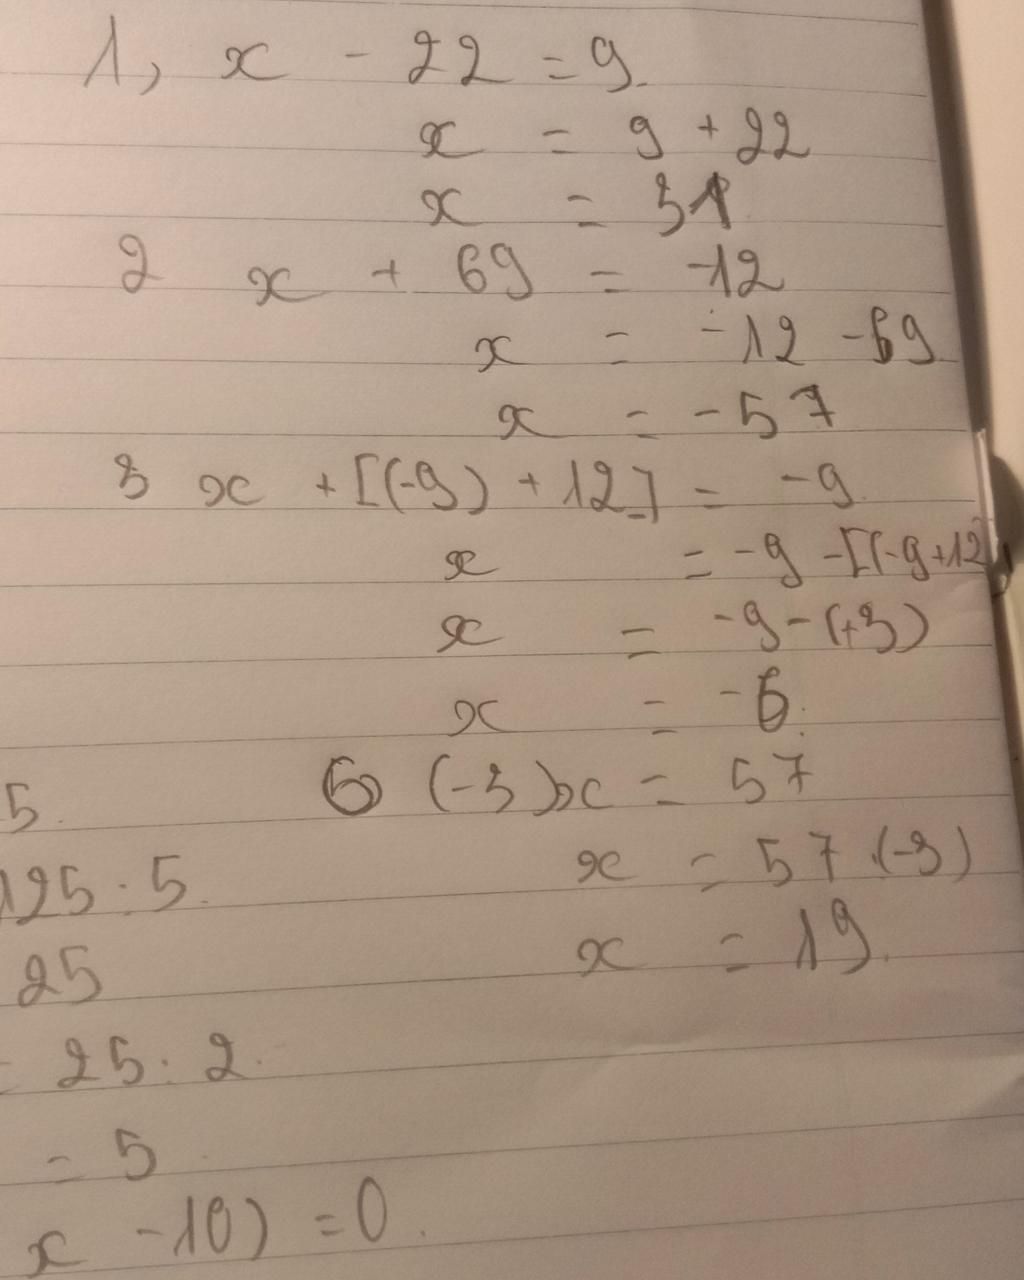 1, x - 22 = 9.
x = 9 + 22
x = 31
2 x + 69 = -12
x = -12 -69
x = -57
3 x + [(-9) + 12] = -9.
x = -9 -[(-9+12]
x = -9 - (+3)
x = -6.
5. 6 (-3)x = 57
125 : 5. x = 57 : (-3)
25 x = 19.
= 25 : 2.
= 5.
x - 10) = 0.